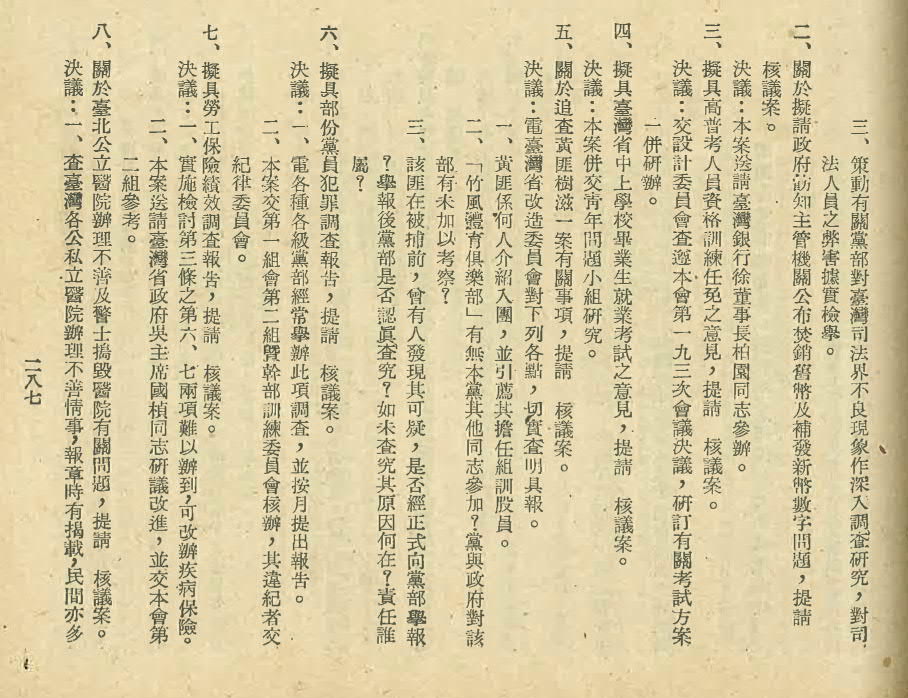 三、策動有關黨部對臺灣司法界不良現象作深入調查研究，對司
法人員之弊害據實檢學。
二、關於擬請政府飭知主管機關公布焚銷舊幣及補發新幣數字問題，提請
核議案。
決議：本案送請臺灣銀行徐董事長柏園同志參辦。
三、擬具高普考人員資格訓練任免之意見，提請　核議案。
決議：交設計委員會查遵本會第一九三次會議決議，研訂有關考試方案
一併研辦。
四、擬具臺灣省中上學校畢業生就業考試之意見，提請　核議案。
決議：本案併交青年問題小組研究。
五、關於追查黃匪樹滋一案有關事項，提請　核議案。
決議：電臺灣省改造委員會對下列各點，切實查明具報。
一、黃匪係何人介紹入團，並引薦其擔任組訓股員。
二、「竹風體育俱樂部」有無本黨其他同志參加？黨與政府對該
部有未加以考察？
三、該匪在被捕前，曾有人發現其可疑，是否經正式向黨部舉報
？舉報後黨部是否認眞查究？如未查究其原因何在？責任誰
屬？
六、擬具部份黨員犯罪調查報告，提請　核議案。
決議：一、電各種各級黨部經常舉辦此項調查，並按月提出報告。
二、本案交第一組會第二組暨幹部訓練委員會核辦，其違紀者交
紀律委員會。
七、擬具勞工保險績效調查報告，提請　核議案。
決議：一、實施檢討第三條之第六、七兩項難以辦到，可改辦疾病保險。
二、本案送請臺灣省政府吳主席國楨同志研議改進，並交本會第
二組參考。
八、關於臺北公立醫院辦理不善及醫士搗毀醫院有關問題，提請　核議案。
決議：一、查臺灣各公私立醫院辦理不善情事，報章時有揭載，民間亦多
二八七